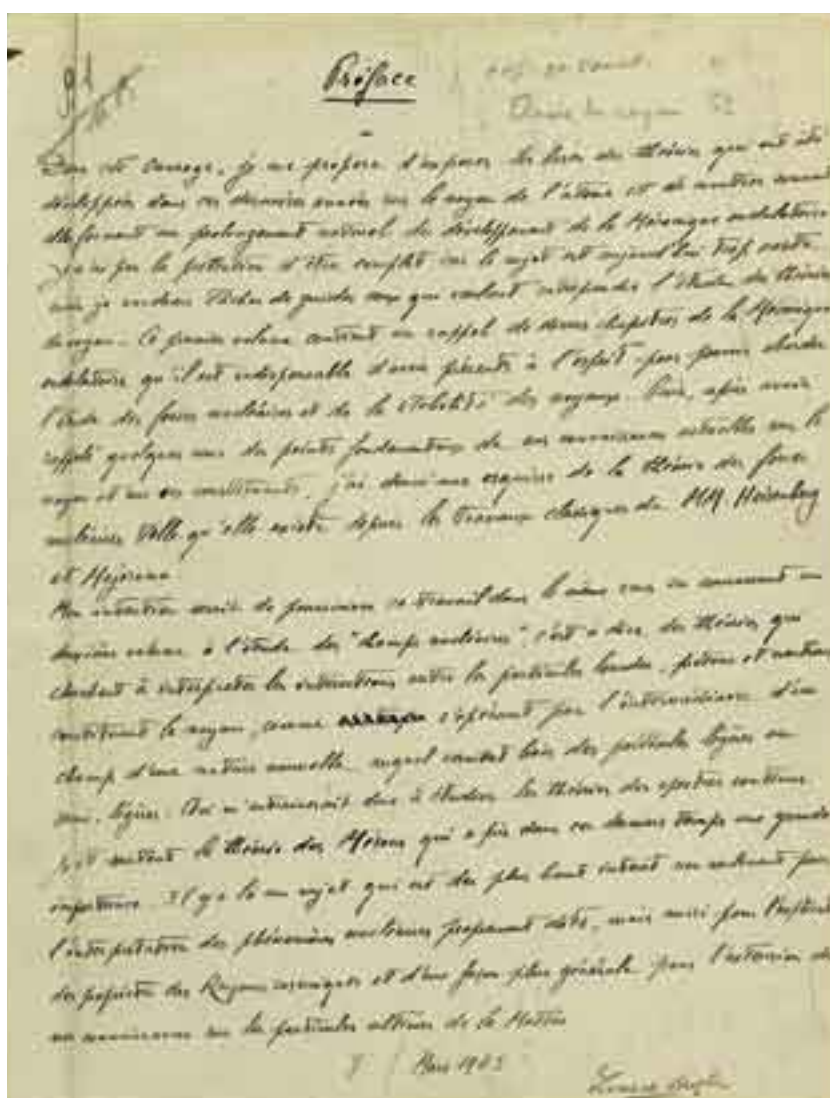 Préface
Dans cet ouvrage, je me propose d'exposer les bases des théories qui ont été
développées dans ces dernières années sur le noyau de l'atome et de montrer comment
elles forment un prolongement naturel du développement de la Mécanique ondulatoire
Je n'ai pas la prétention d'être complet car le sujet est aujourd'hui trop vaste
mais je voudrais tâcher de guider ceux qui veulent entreprendre l'étude des théories
du noyau. Ce premier volume contient un rappel de divers chapitres de la Mécanique
ondulatoire qu'il est indispensable d'avoir présents à l'esprit pour pouvoir aborder
l'étude des forces nucléaires et de la stabilité des noyaux. Puis, après avoir
rappelé quelques uns des points fondamentaux de nos connaissances actuelles sur le
noyau et sur ses constituants, j'ai donné une esquisse de la théorie des forces
nucléaires telle qu'elle existe depuis les travaux classiques de MM Heisenberg
et Majorana
Mon intention serait de poursuivre ce travail dans le même sens en consacrant un
deuxième volume à l'étude des "champs nucléaires", c'est à dire, des théories qui
cherchent à interpréter les interactions entre les particules lourdes, protons et neutrons
constituant le noyau, comme s'opérant par l'intermédiaire d'un
champ d'une nature nouvelle auquel seraient liées des particules légères ou
semi-légères. Ceci m'amènerait donc à étudier les théories des spectres continus
et surtout la théorie des Mésons qui a pris dans ces derniers temps une grande
importance. Il y a là un sujet qui est du plus haut intérêt non seulement pour
l'interprétation des phénomènes nucléaires proprement dits, mais aussi pour
des propriétés des Rayons cosmiques et d'une façon plus générale pour l'extension de
nos connaissances sur les particules ultimes de la Matière
Mars 1943